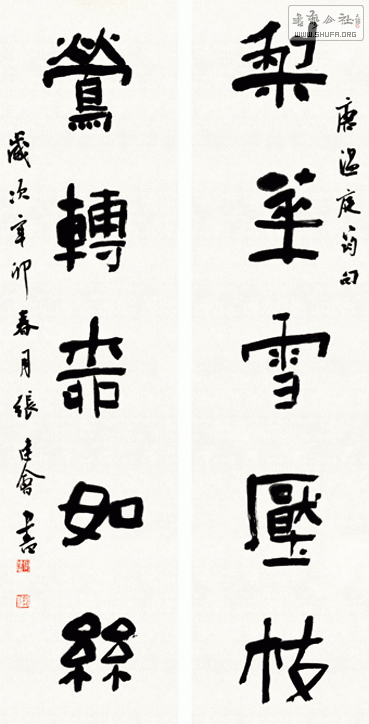 書法公社
WWW.SHUFA.ORG
唐溫庭筠句
梨華雪壓枝
鶯轉柳如絲
歲次辛卯春月張建會書